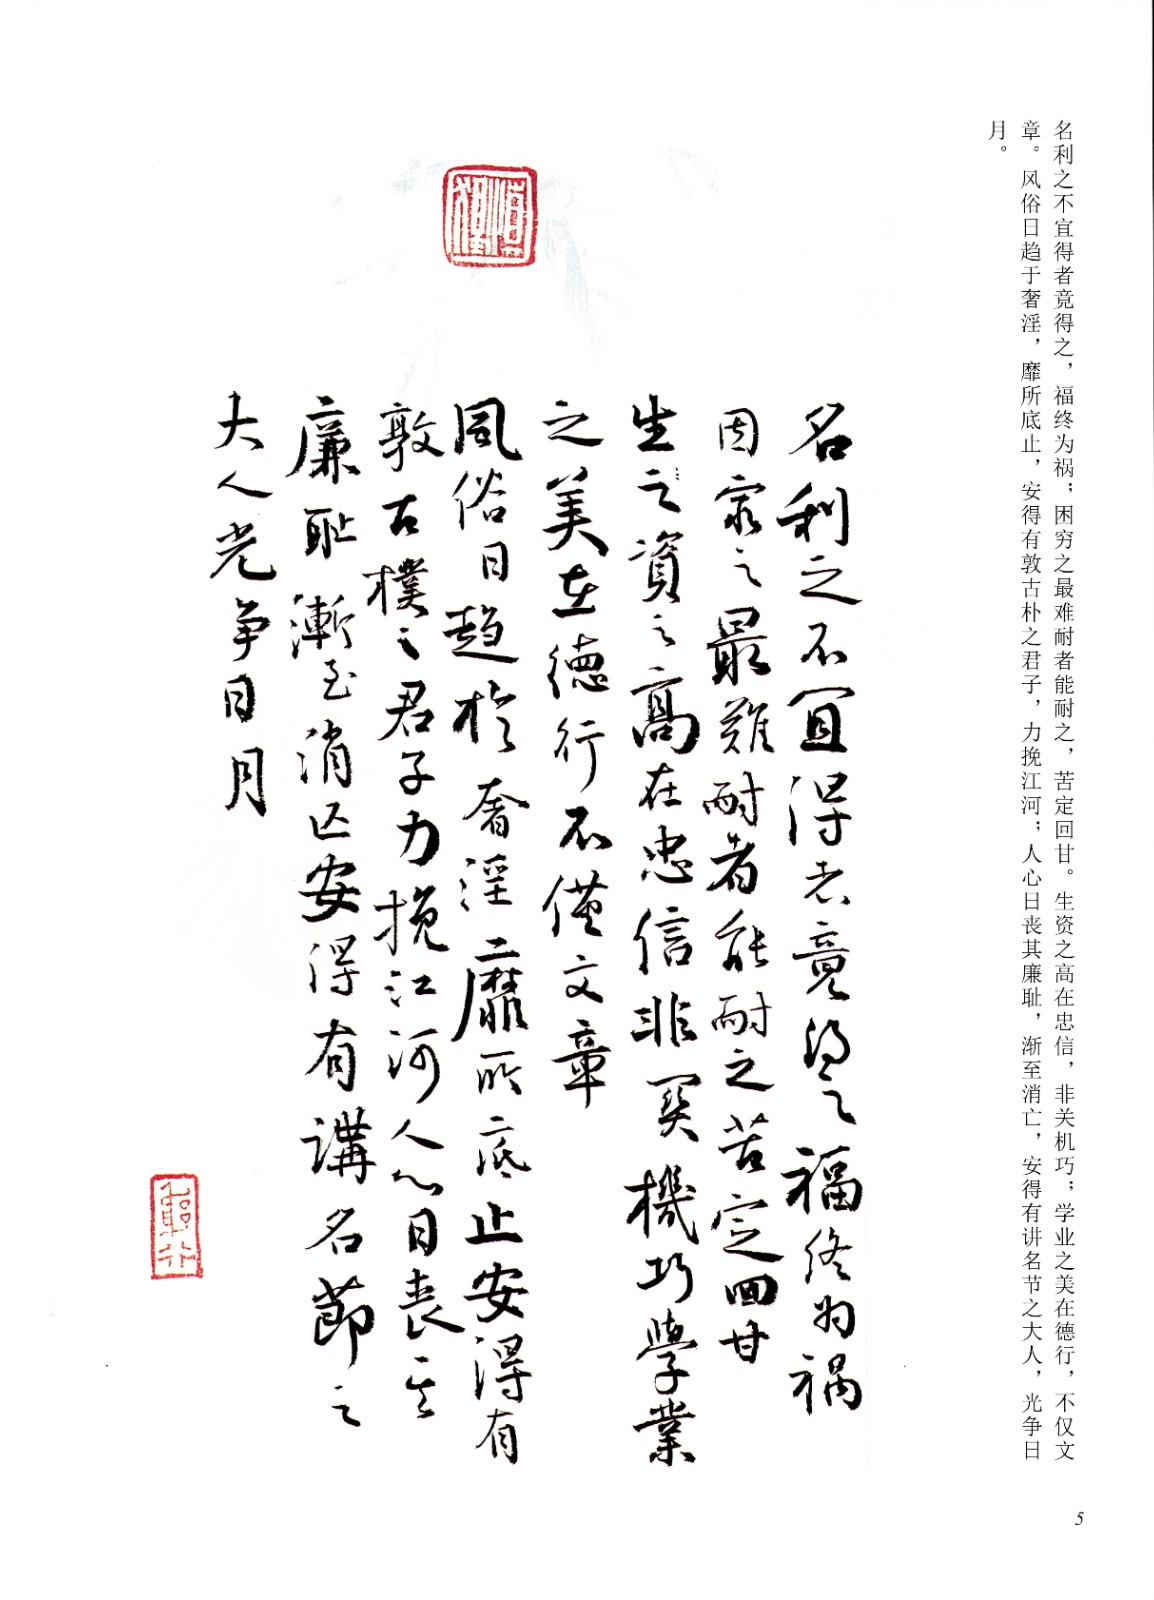 名利之不宜得者竟得之，福终为祸；困穷之最难耐者能耐之，苦定回甘。生资之高在忠信，非关机巧；学业之美在德行，不仅文
章。风俗日趋于奢淫，靡所底止，安得有敦古朴之君子，力挽江河；人心日丧其廉耻，渐至消亡，安得有讲名节之大人，光争日
月。
名利之不宜得者竟得之福终为祸
困穷之最難耐者能耐之苦定回甘
生之資之高在忠信非関機巧學業
之美在德行不僅文章
風俗日趨於奢淫靡所底止安得有
敦古樸之君子力挽江河人心日喪其
廉耻漸至消亡安得有講名節之
大人光争日月
5